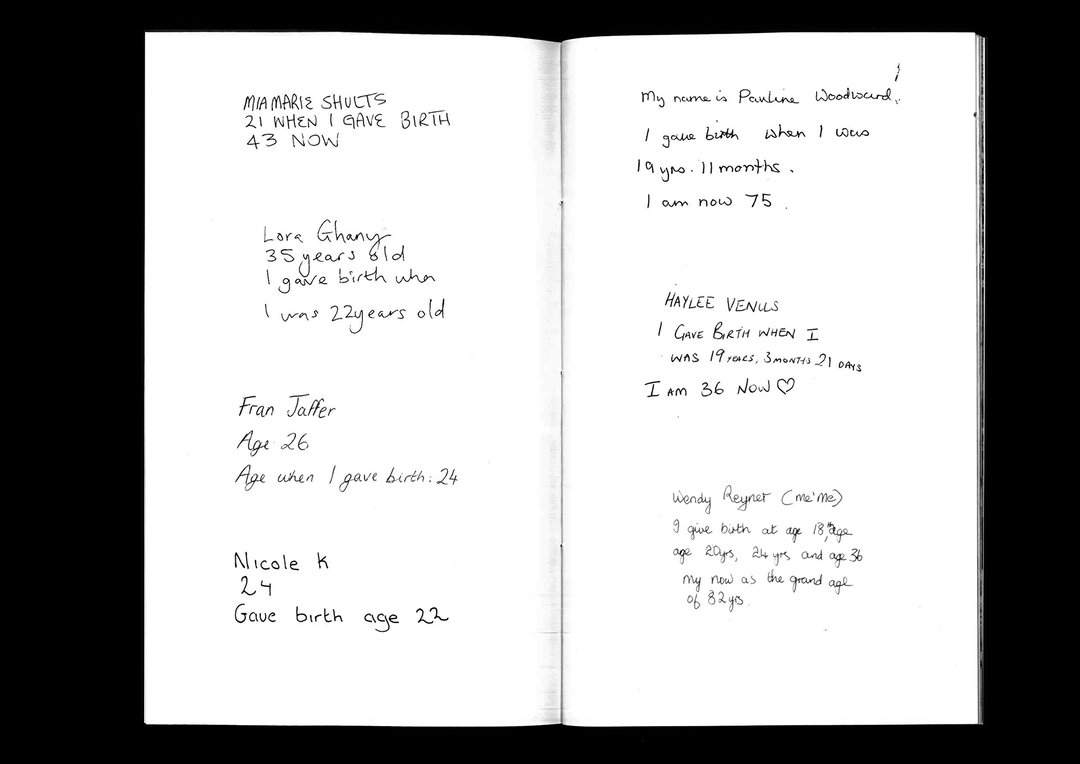 MIA MARIE SHULTS
21 WHEN I GAVE BIRTH
43 NOW
Lora Ghany
35 years old
I gave birth when
I was 22 years old
Fran Jaffer
Age 26
Age when I gave birth: 24
Nicole K
24
Gave birth age 22
My name is Pauline Woodward.
I gave birth when I was
19 yrs. 11 months.
I am now 75.
HAYLEE VENUS
I GAVE BIRTH WHEN I
WAS 19 YEARS, 3 MONTHS 21 DAYS
I AM 36 NOW ♡
Wendy Reyner (me'me)
I give birth at age 18, age
age 20yrs, 24 yrs and age 36
my now as the grand age
of 82 yrs.